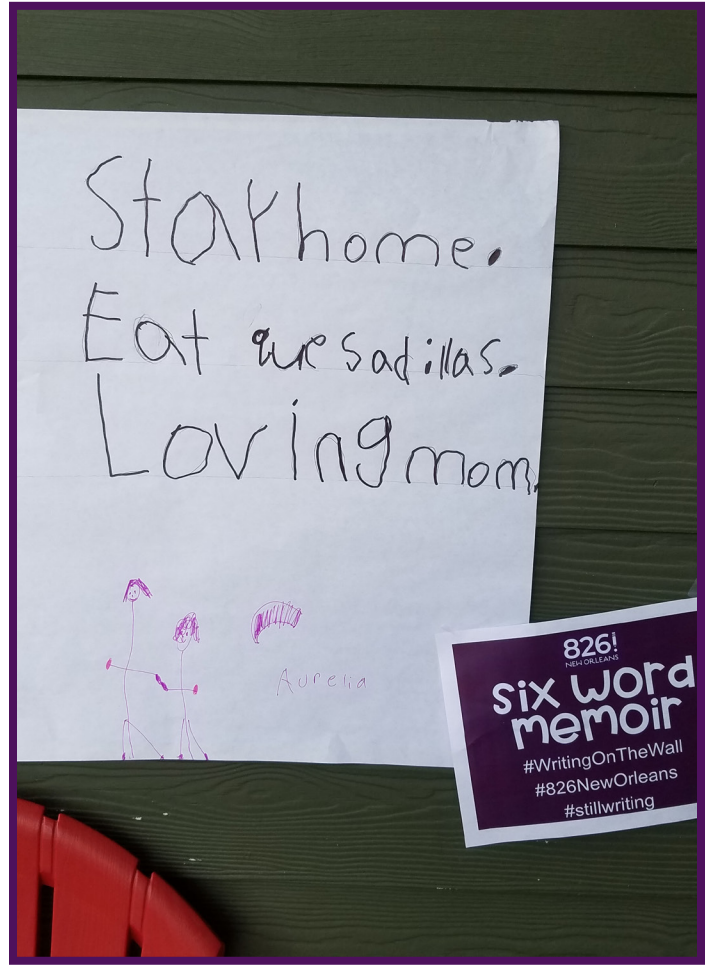 Stay home.
Eat quesadillas.
Loving mom.
Aurelia
826!
NEW ORLEANS
six word
memoir
#WritingOnTheWall
#826NewOrleans
#stillwriting